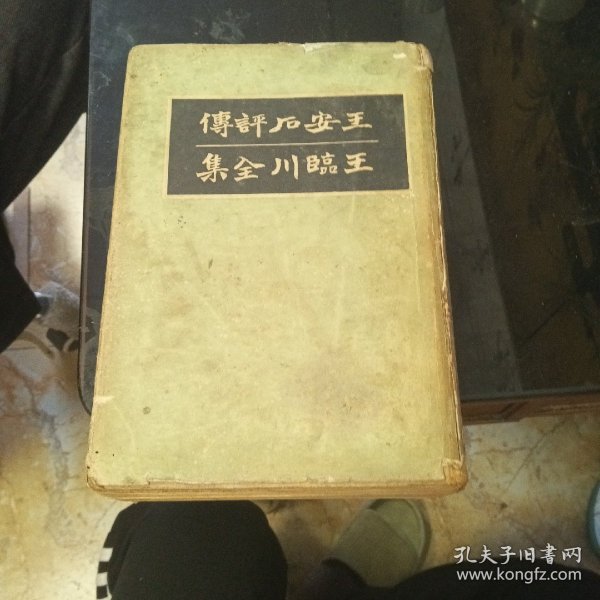 王安石評傳
王臨川全集
孔夫子旧書网
www.kongfz.com